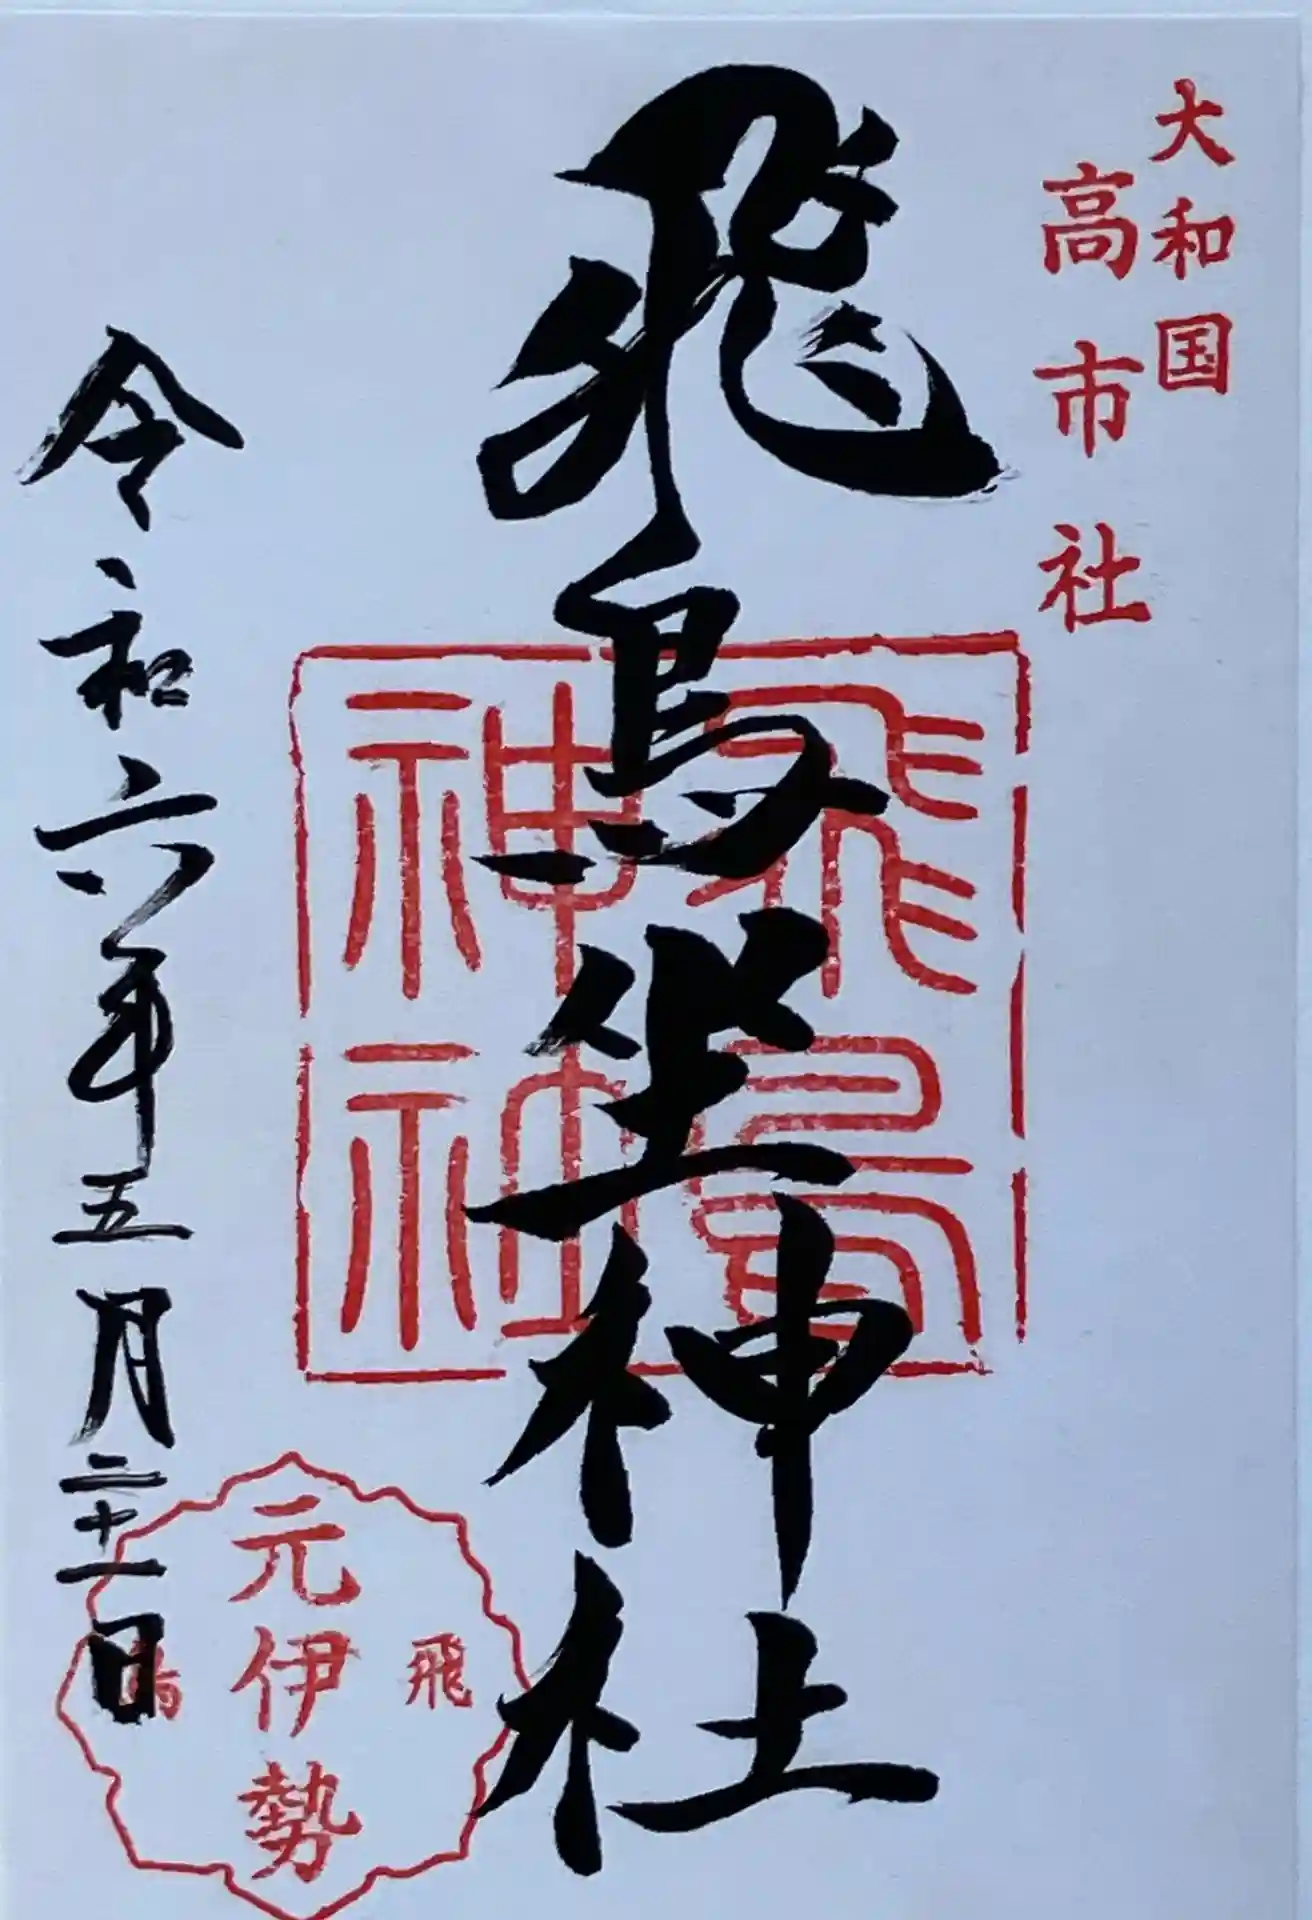 大和国
高市社
飛鳥坐神社
飛鳥神社
令和六年五月二十一日
元伊勢
飛鳥